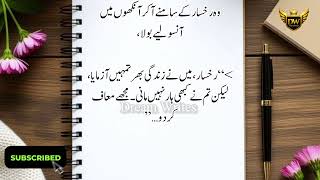 وہ رخسار کے سامنے آ کر آنکھوں میں
آنسو لیے بولا،
>“رخسار، میں نے زندگی بھر تمہیں آزمایا،
لیکن تم نے کبھی ہار نہیں مانی۔ مجھے معاف
کر دو...”
Dream Writes
DW
SUBSCRIBED